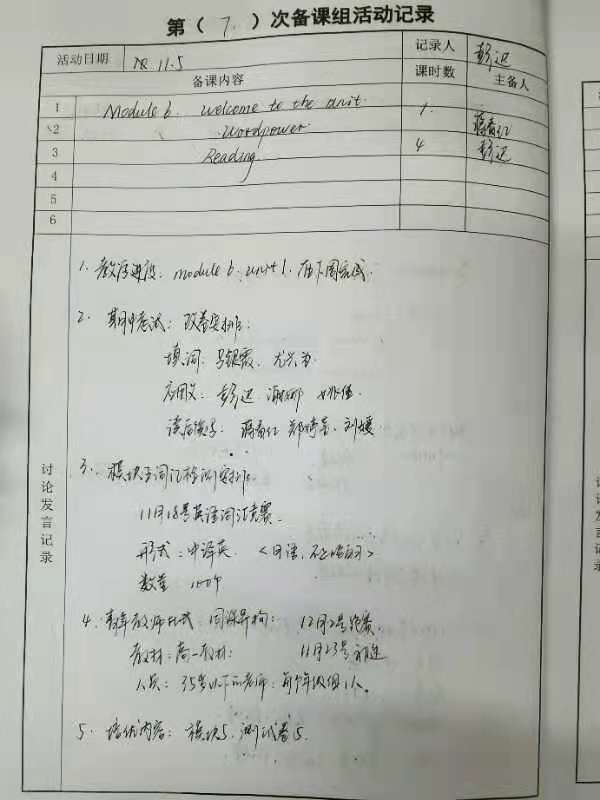 第（7）次备课组活动记录
活动日期 11.5 记录人 彭迅
备课内容 课时数 主备人
1 Module 6. Welcome to the unit. 1
2 Wordpower 蒋春红
3 Reading 4 彭迅
4
5
6
讨论发言记录
1. 教学进度：module 6. unit 1. 在下周完成.
2. 期中考试：改卷安排：
填词：马银霞、尤兴
应用文：彭迅
读后续写：蒋春红 郑婷 刘媛
3. 模块五词汇检测安排：
11月18号英语词汇竞赛.
形式：中译英.
数量 100个
4. 青年教师比武：同课异构： 12月2号比赛.
教材：高一教材： 11月23号
人员：35岁以下的老师：每个年级组1人。
5. 培优内容：模块5. 测试卷5.